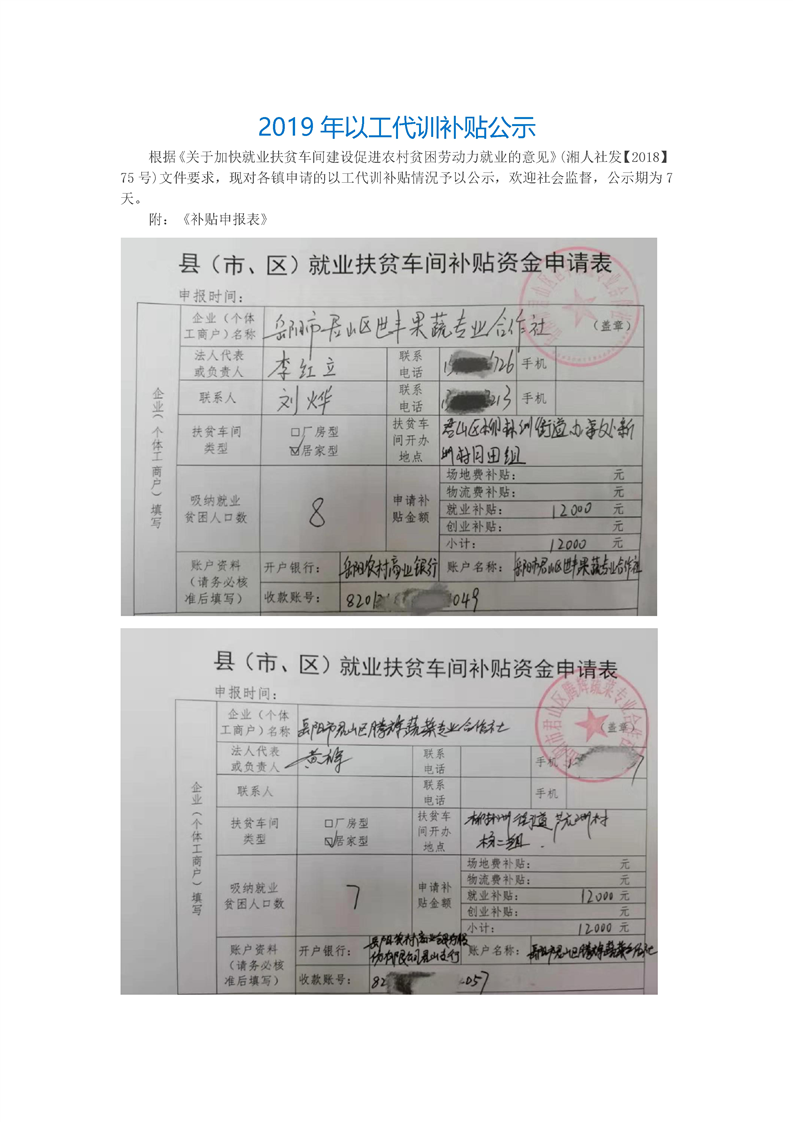 2019 年以工代训补贴公示
根据《关于加快就业扶贫车间建设促进农村贫困劳动力就业的意见》(湘人社发【2018】
75 号)文件要求，现对各镇申请的以工代训补贴情况予以公示，欢迎社会监督，公示期为 7
天。
附：《补贴申报表》
县（市、区）就业扶贫车间补贴资金申请表
申报时间：
企业（个体工商户）填写
企业（个体
工商户）名称
岳阳市君山区世丰果蔬专业合作社
（盖章）
法人代表
或负责人
李红立
联系
电话
726
手机
联系人
刘烨
联系
电话
213
手机
扶贫车间
类型
□厂房型
☑居家型
扶贫车
间开办
地点
君山区柳林洲街道办事处新
洲村同田组
吸纳就业
贫困人口数
8
申请补
贴金额
场地费补贴： 元
物流费补贴： 元
就业补贴： 12000 元
创业补贴： 元
小计： 12000 元
账户资料
（请务必核
准后填写）
开户银行： 岳阳农村商业银行
账户名称： 岳阳市君山区世丰果蔬专业合作社
收款账号： 820 049
县（市、区）就业扶贫车间补贴资金申请表
申报时间：
企业（个体工商户）填写
企业（个体
工商户）名称
岳阳市君山区腾辉蔬菜专业合作社
（盖章）
法人代表
或负责人
黄辉
联系
电话
手机
7
联系人
联系
电话
手机
扶贫车间
类型
□厂房型
☑居家型
扶贫车
间开办
地点
柳林洲街道芦花洲村
二组
吸纳就业
贫困人口数
7
申请补
贴金额
场地费补贴： 元
物流费补贴： 元
就业补贴： 12000 元
创业补贴： 元
小计： 12000 元
账户资料
（请务必核
准后填写）
开户银行： 岳阳农村商业银行股
份有限公司君山支行
账户名称： 岳阳市君山区腾辉蔬菜专业合作社
收款账号： 82 057